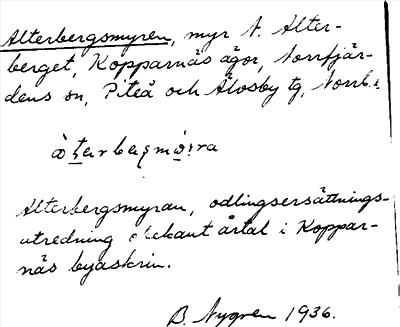 Alterbergsmyren, myr N. Alter-
berget, Kopparnäs ägor, Norrfjär-
dens sn, Piteå och Älvsby tg, Norrb.

Alterbergsmyran, odlingsersättnings-
utredning obekant årtal i Koppar-
näs byaskrin.
B. Nygren 1936.